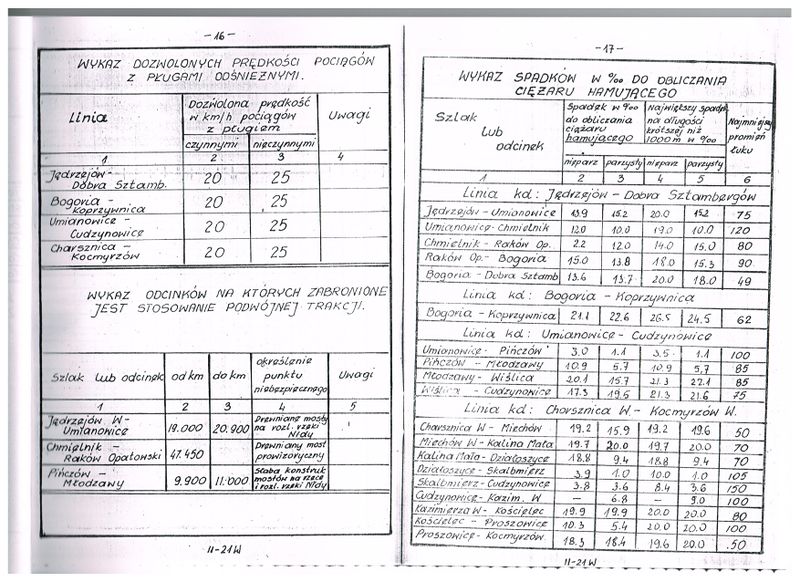 -16-
WYKAZ DOZWOLONYCH PRĘDKOŚCI POCIĄGÓW
Z PŁUGAMI ODŚNIEŻNYMI.
Linia | Dozwolona prędkość w km/h pociągów z pługiem | Uwagi
czynnymi | nieczynnymi
1 | 2 | 3 | 4
Jędrzejów - Dobra Sztamb. | 20 | 25
Bogoria - Koprzywnica | 20 | 25
Umianowice - Cudzynowice | 20 | 25
Charsznica - Kocmyrzów | 20 | 25
WYKAZ ODCINKÓW NA KTÓRYCH ZABRONIONE
JEST STOSOWANIE PODWÓJNEJ TRAKCJI.
Szlak lub odcinek | od km | do km | określenie punktu niebezpiecznego | Uwagi
1 | 2 | 3 | 4 | 5
Jędrzejów W - Umianowice | 19.000 | 20.900 | Drewniane mosty na rozl. rzeki Nidy
Chmielnik - Raków Opatowski | 47.450 | Drewniany most prowizoryczny
Pińczów - Młodzawy | 9.900 | 11.000 | Słaba konstruk mostów na rzece i rozl. rzeki Nidy
II-21W
-17-
WYKAZ SPADKÓW W ‰ DO OBLICZANIA
CIĘŻARU HAMUJĄCEGO
Szlak lub odcinek | Spadek w ‰ do obliczania ciężaru hamującego | Największy spadek na długości krótszej niż 1000 m w ‰ | Najmniejszy promień łuku
nieparz | parzysty | nieparz | parzysty
1 | 2 | 3 | 4 | 5 | 6
Linia kd: Jędrzejów - Dobra Sztambergów
Jędrzejów - Umianowice | 13.9 | 15.2 | 20.0 | 15.2 | 75
Umianowice - Chmielnik | 12.0 | 10.0 | 19.0 | 10.0 | 120
Chmielnik - Raków Op. | 2.2 | 12.0 | 14.0 | 15.0 | 80
Raków Op. - Bogoria | 15.0 | 13.8 | 18.0 | 15.3 | 90
Bogoria - Dobra Sztamb | 13.6 | 13.7 | 20.0 | 18.0 | 49
Linia kd: Bogoria - Koprzywnica
Bogoria - Koprzywnica | 21.1 | 22.6 | 26.5 | 24.5 | 62
Linia kd: Umianowice - Cudzynowice
Umianowice - Pińczów | 3.0 | 1.1 | 3.5 | 1.1 | 100
Pińczów - Młodzawy | 10.9 | 5.7 | 10.9 | 5,7 | 85
Młodzawy - Wiślica | 20.1 | 15.7 | 21.3 | 22.1 | 85
Wiślica - Cudzynowice | 17.3 | 19.5 | 21.3 | 21.6 | 75
Linia kd: Charsznica W - Kocmyrzów W.
Charsznica W - Miechów | 19.2 | 15.9 | 19.2 | 19.6 | 50
Miechów W - Kalina Mała | 19.7 | 20.0 | 19.7 | 20.0 | 70
Kalina Mała - Działoszyce | 18.8 | 9.4 | 18.8 | 9.4 | 70
Działoszyce - Skalbmierz | 3.9 | 1.0 | 10.0 | 1.0 | 105
Skalbmierz - Cudzynowice | 3.8 | 3.6 | 8.4 | 3.6 | 150
Cudzynowice - Kazim. W | — | 6.8 | — | 9.0 | 100
Kazimierza W - Kościelec | 19.9 | 19.9 | 20.0 | 20.0 | 80
Kościelec - Proszowice | 10.3 | 5.4 | 20.0 | 20.0 | 100
Proszowice - Kocmyrzów | 18.3 | 18.4 | 19.6 | 20.0 | 50
II-21W